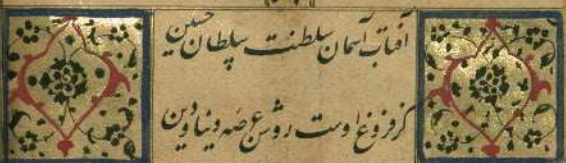 آفتاب آسمان سلطنت سلطان حسین
کز فروغ اوست روشن عرصه دنیا و دین